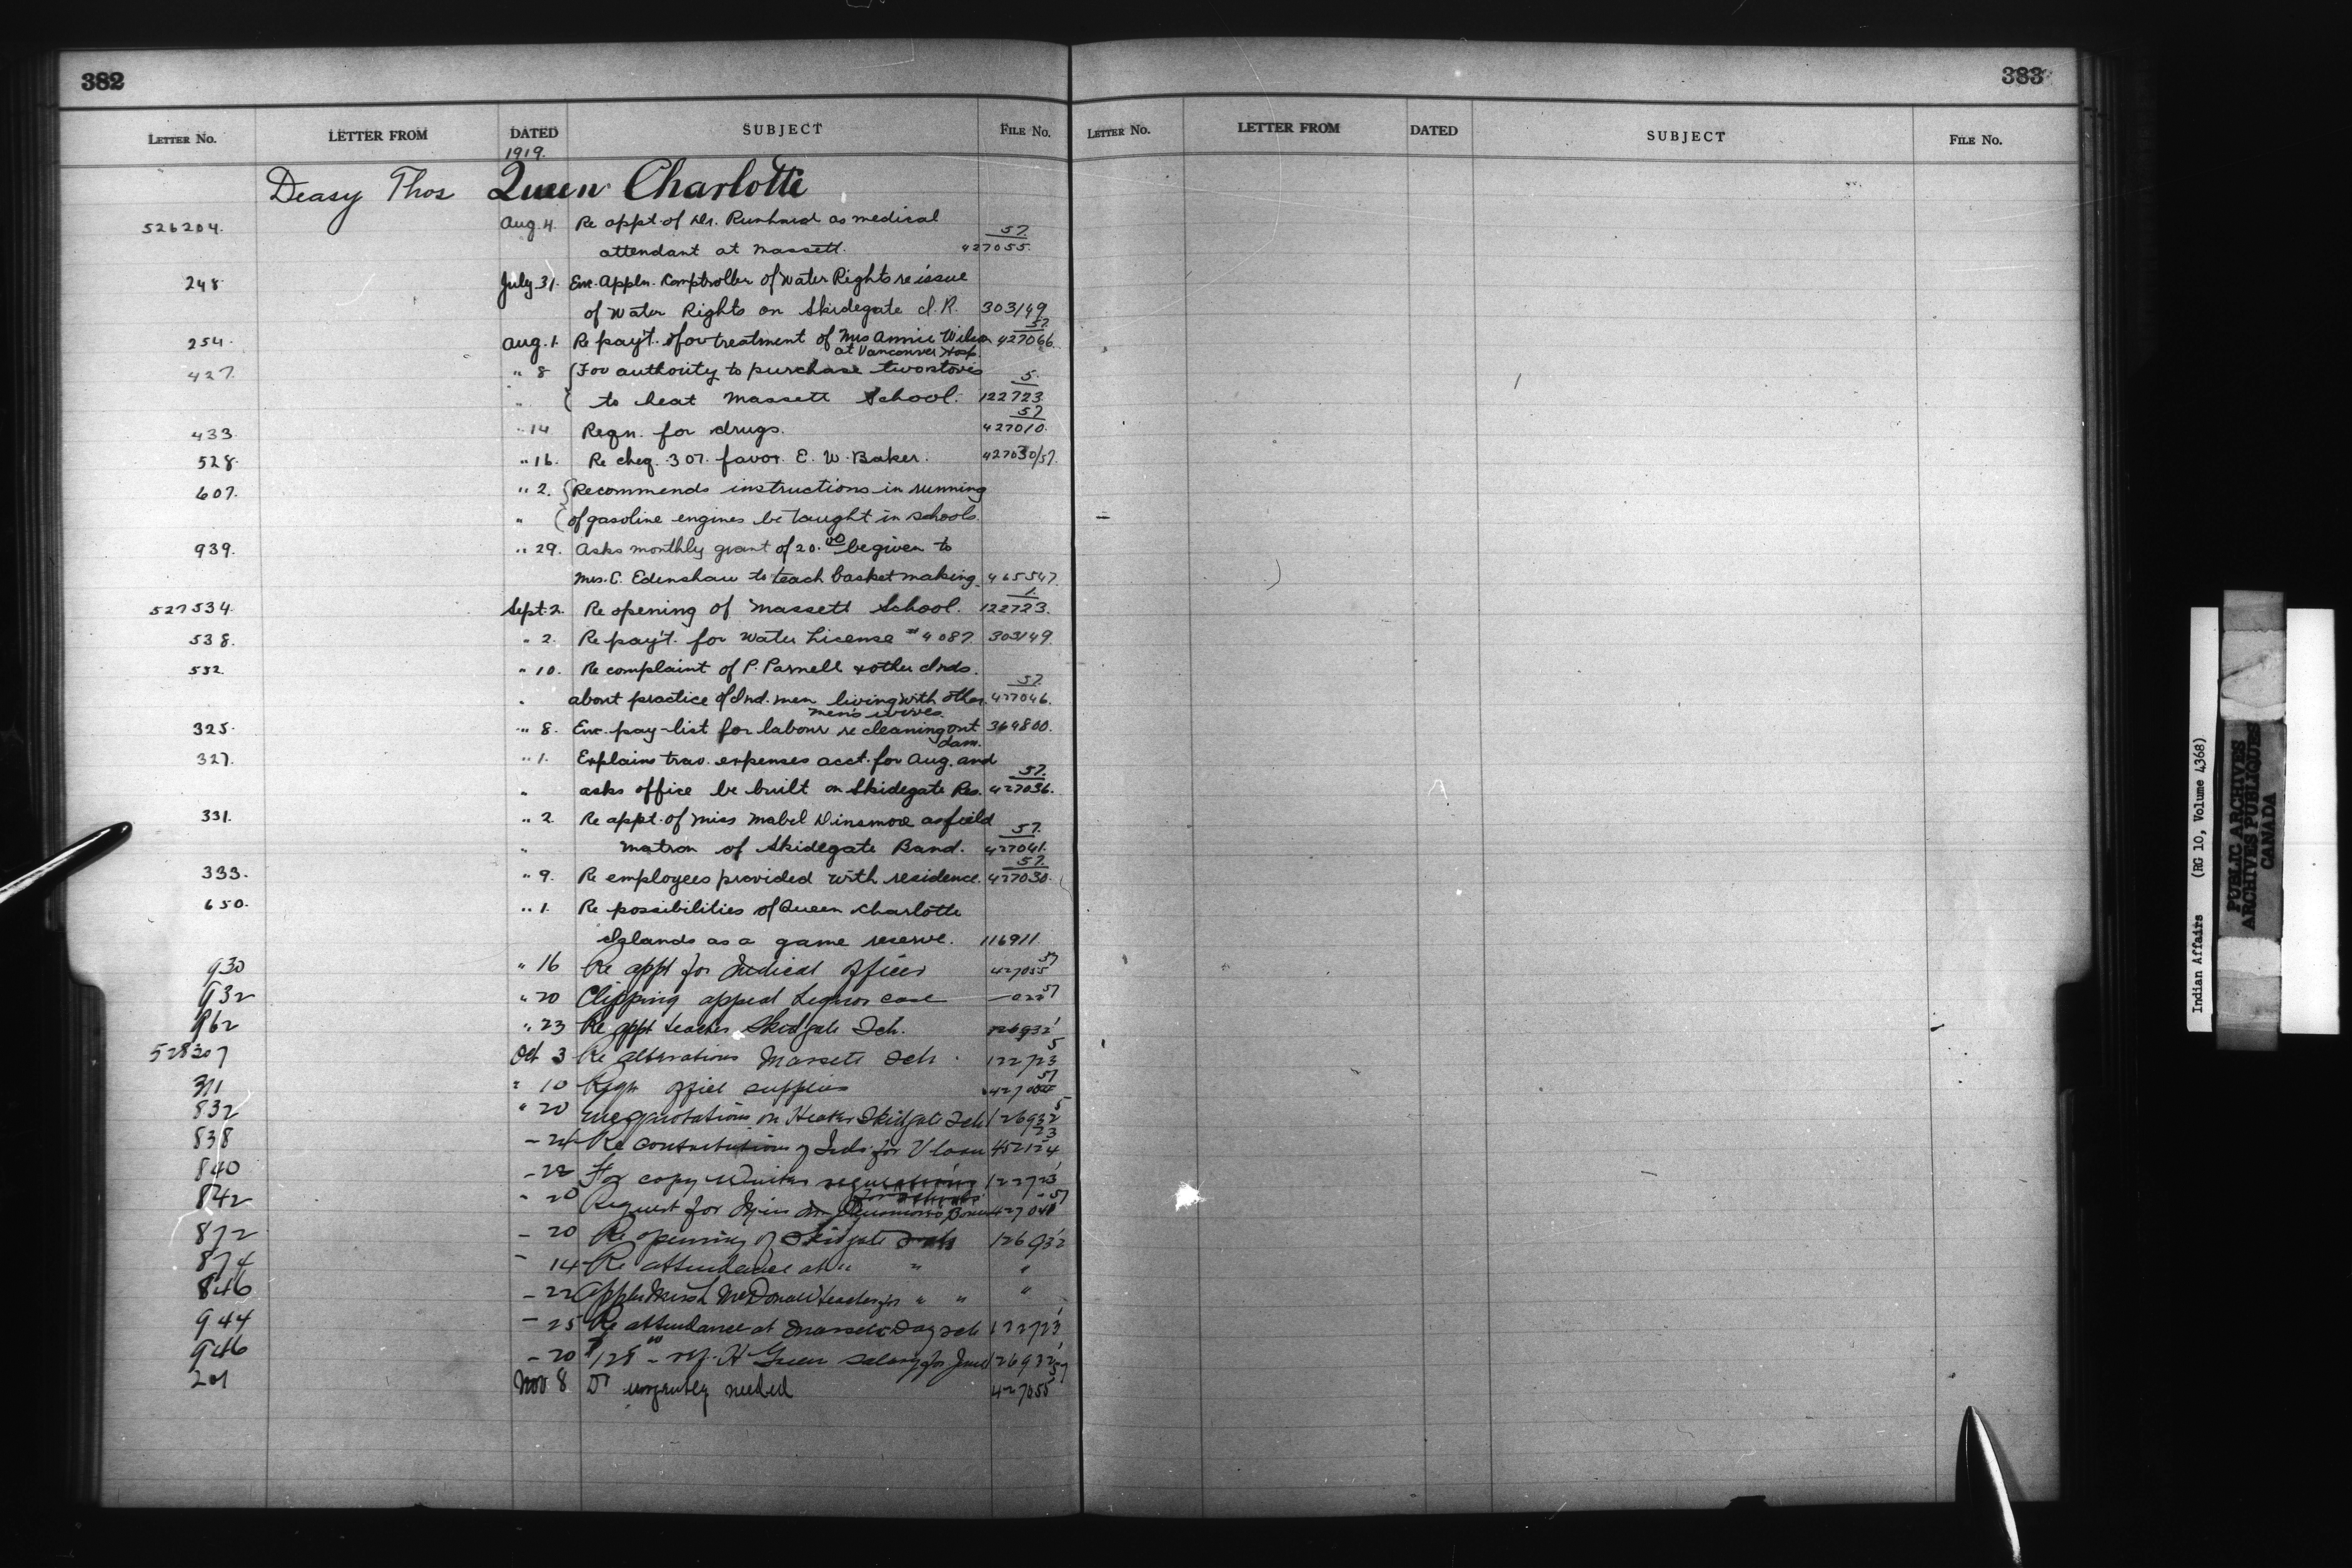 382
383
LETTER No. LETTER FROM DATED SUBJECT FILE No.
LETTER No. LETTER FROM DATED SUBJECT FILE No.
1919.
Deasy Thos Queen Charlotte
526204. Aug. 4. Re appt. of Dr. as medical 57.
attendant at Massett. 427055.
248 July 31. Enc. Appln. Comptroller of Water Rights re issue
of Water Rights on Skidegate I.R. 303149
254. Aug. 1. Re pay't. for treatment of Mrs Annie Wilson 57. 427066.
at Vancouver Hosp.
427. " 8 For authority to purchase two stoves 5.
" to heat Massett School. 122723
433. " 14 Reqn. for drugs. 57 427010.
528. " 16. Re cheq. 307. favor E. W. Baker. 427030/57.
607. " 2. Recommends instructions in running
" of gasoline engines be taught in schools.
939. " 29. Asks monthly grant of 20.00 be given to
Mrs. C. Edenshaw to teach basket making. 465547.
527534. Sept. 2. Re opening of Massett School. 1. 122723.
538. " 2. Re pay't. for Water License # 4087. 303149.
532. " 10. Re complaint of P. Parnell & other Inds. 57.
" about practice of Ind. men living with other 427046.
men's wives.
325. " 8. Enc. pay-list for labour re cleaning out 364800.
dam.
327. " 1. Explains trav. expenses acct. for Aug. and 57.
" asks office be built on Skidegate Res. 427036.
331. " 2. Re appt. of Miss Mabel Dinsmore as field 57.
" Matron of Skidegate Band. 427041.
333. " 9. Re employees provided with residence. 57. 427030.
650. " 1. Re possibilities of Queen Charlotte
Islands as a game reserve. 116911.
930 " 16 Re appt for Medical Officer 57 427055
932 " 20 Clipping appeal Liquor case 57
962 " 23 Re appt teacher Skidgate Sch. 126932
528307 Oct 3 Re alterations Massett Sch. 5 122723
311 " 10 Reqn office supplies 57
832 " 20 quotations on Heater Skidgate Sch 5 126932
838 - 24 Re contributions of Inds for V loan 23 452124
840 - 22 For copy Winter 122723
842 " 20 Request for 57
872 - 20 Re opening of Skidgate Sch 126932
874 - 14 Re attendance at " " "
846 - 22 McDonald teacher for " " "
944 - 25 Re attendance at Massett Day Sch 122723
946 - 20 Green salary for June 126932
201 Nov 8 Dr urgently needed 57 427055
Indian Affairs (RG 10, Volume 4368)
PUBLIC ARCHIVES
ARCHIVES PUBLIQUES
CANADA